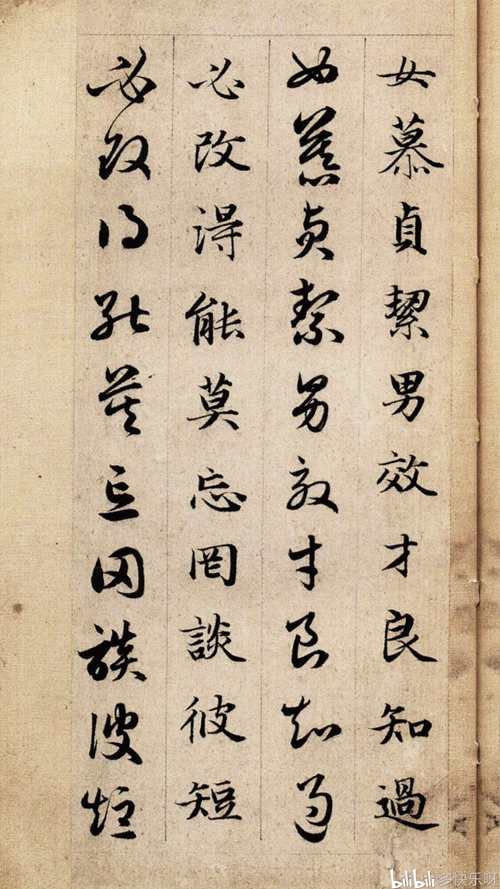 女慕貞絜男效才良知過
女慕貞絜男效才良知過
必改得能莫忘罔談彼短
必改得能莫忘罔談彼短
bilibili@多快乐呀